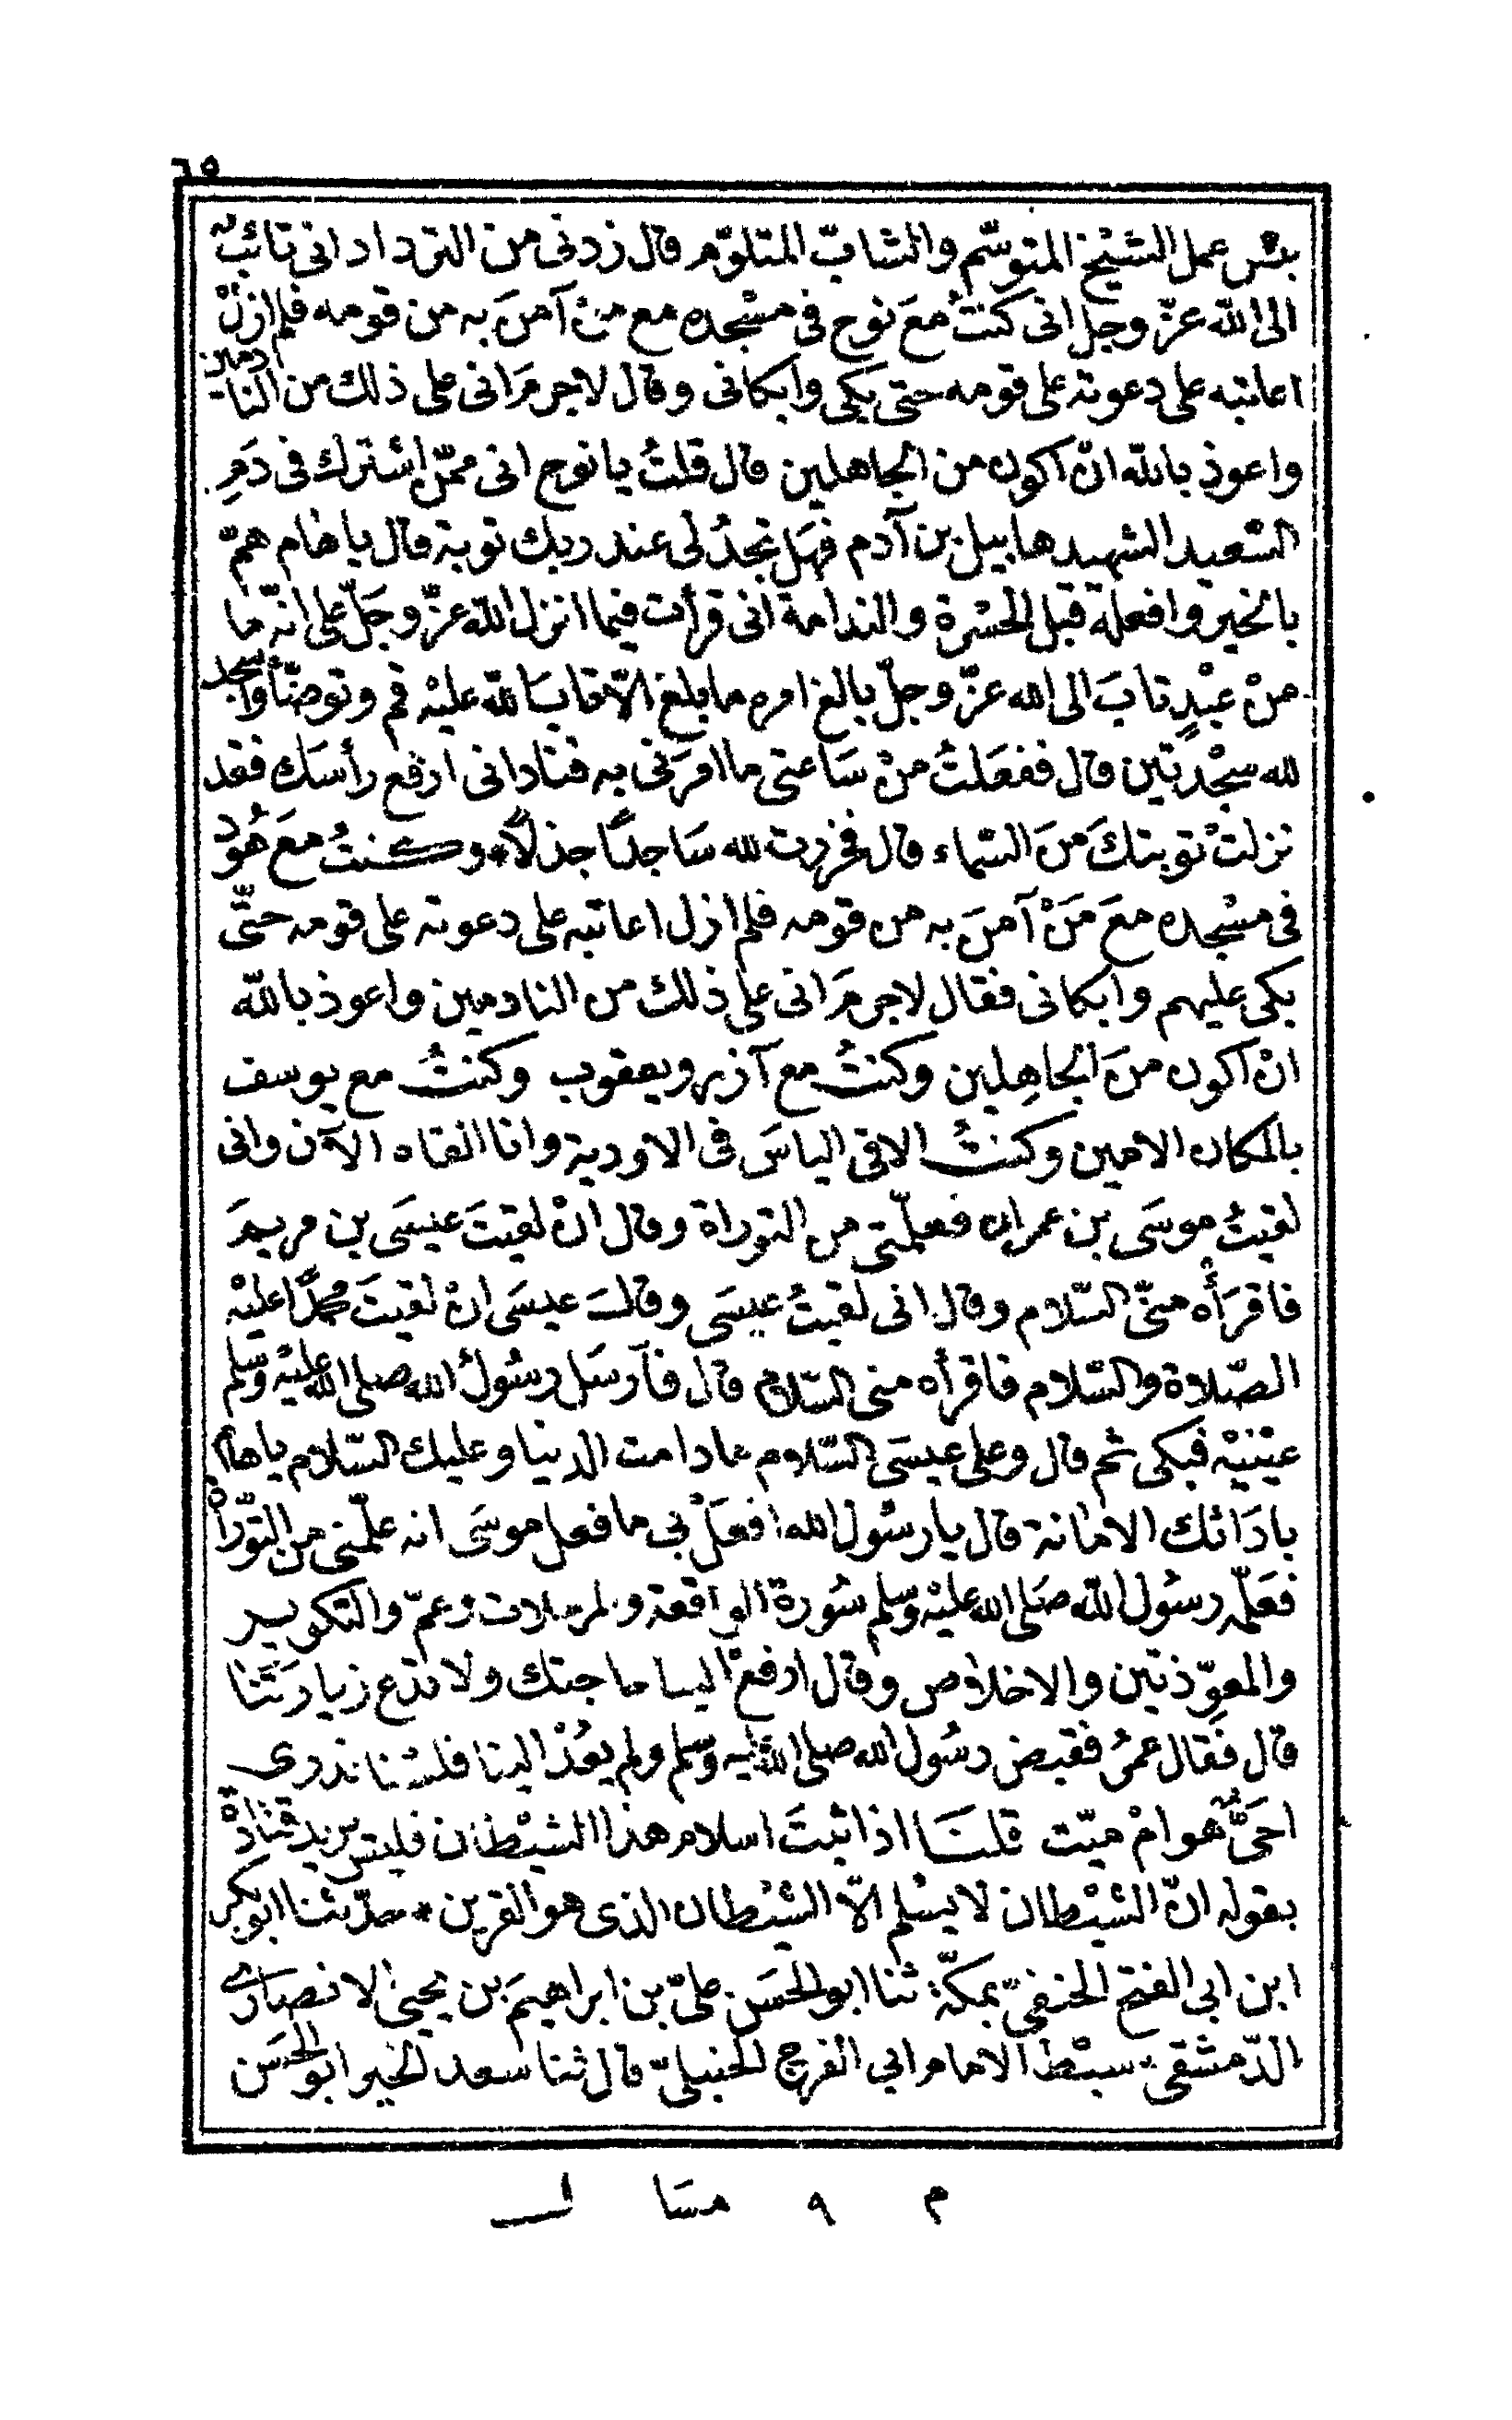 ٦٥
بئس عمل الشيْخ المتوسّم والشابّ المتلوّم قال زدنى من الترداد انى تائبٌ
الى الله عزّ وجل انى كنتُ معَ نوح فى مسْجده مع منْ آمنَ به من قومه فلم ازلْ
اعاتبه على دعوته على قومه حتى بكى وابكانى وقال لاجرمَ انى على ذلك من النادمين
واعوذ بالله انْ اكون من الجاهلين قال قلتُ يا نوح انى ممّن اشترك فى دَمِ
السّعيد الشهيد هابيل بن آدم فهَل تجدُ لى عند ربك توبة قال يا هام همّ
بالخير وافعله قبل الحسْرة والندامة انى قرأت فيما انزل الله عزّ وجَلّ على انّه ما
منْ عبْدٍ تابَ الى الله عزّ وجلّ بالغ امره ما بلغ الّا تابَ الله عليْه قم وتوضّأ واسجد
لله سجْدتين قال ففعَلتُ منْ سَاعتى ما امرَنى به فنادانى ارفع رأسَك فقد
نزلتْ توبتكَ منَ السّماء قال فخررت لله سَاجدًا جذلاً * وكنتُ معَ هُود
فى مسْجده معَ مَنْ آمنَ به من قومه فلم ازل اعاتبه على دعوته على قومه حتَّى
بكى عليهم وابكانى فقال لاجرمَ انى على ذلك من النادمين واعوذ بالله
انْ اكون منَ الجاهِلين وكنتُ مع آزر ويعقوب وكنتُ مع يوسف
بالمكان الامين وكنتُ الاقى الياسَ فى الاودية وانا القاه الآن وانى
لقيتُ موسَى بن عمران فعلّمنى من التوراة وقال انْ لقيتَ عيسَى بن مريمَ
فاقرَأْه منّى السّلام وقال انى لقيتُ عيسَى وقال عيسَى انْ لقيتَ محمدًا عليْه
الصّلاة والسّلام فاقرأه منى السّلام قال فآرسَل رسُولُ الله صلى الله عليْه وسلم
عيْنيْه فبكى ثم قال وعلى عيسَى السّلام مادامت الدنيا وعليك السّلام ياهام
بادَائك الامانة قال يا رسُول الله افعَلْ بى ما فعل موسَى انه علّمنى من التّوراة
فعَلّمه رسُول الله صَلى الله عليْه وسلم سُورة الواقعة والمرسلات وعمّ والتكوير
والمعوِّذتين والاخلاص وقال ارفعْ الينا حاجتك ولا تدع زيارتَنا
قال فقال عمرُ فقبض رسُول الله صلى الله عليه وسلم ولم يعُدْ الينا فلسْنا ندرى
احَىٌّ هو امْ ميّت قلنَا اذا ثبتَ اسلام هذا الشيْطان فليس يريد قتادة
بقوله انّ الشيْطان لا يسْلم الّا الشيْطان الذى هو القرين * حدّثنا ابو بكر
ابن ابى الفتح الحنفىّ بمكّة ثنا ابو الحسَن علىّ بن ابراهيمَ بن يحيىٰ الانصارى
الدّمشقى سبْط الامام ابى الفرج الحنبلىّ قال ثنا سعد الخير ابو الحسَن
م ٩ مسَا ل